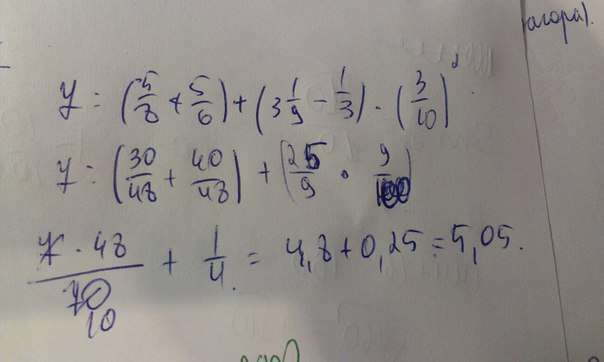 агора).
7 : (5/8 + 5/6) + (3 1/9 - 1/3) · (3/10)²
7 : (30/48 + 40/48) + (25/9 · 9/100)
7 · 48/70 + 1/4 = 4,8 + 0,25 = 5,05.
10